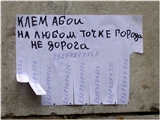 КЛЕМ АБОИ
НА ЛЮБОМ ТОЧКЕ ГОРОДА
НЕ ДОРОГА